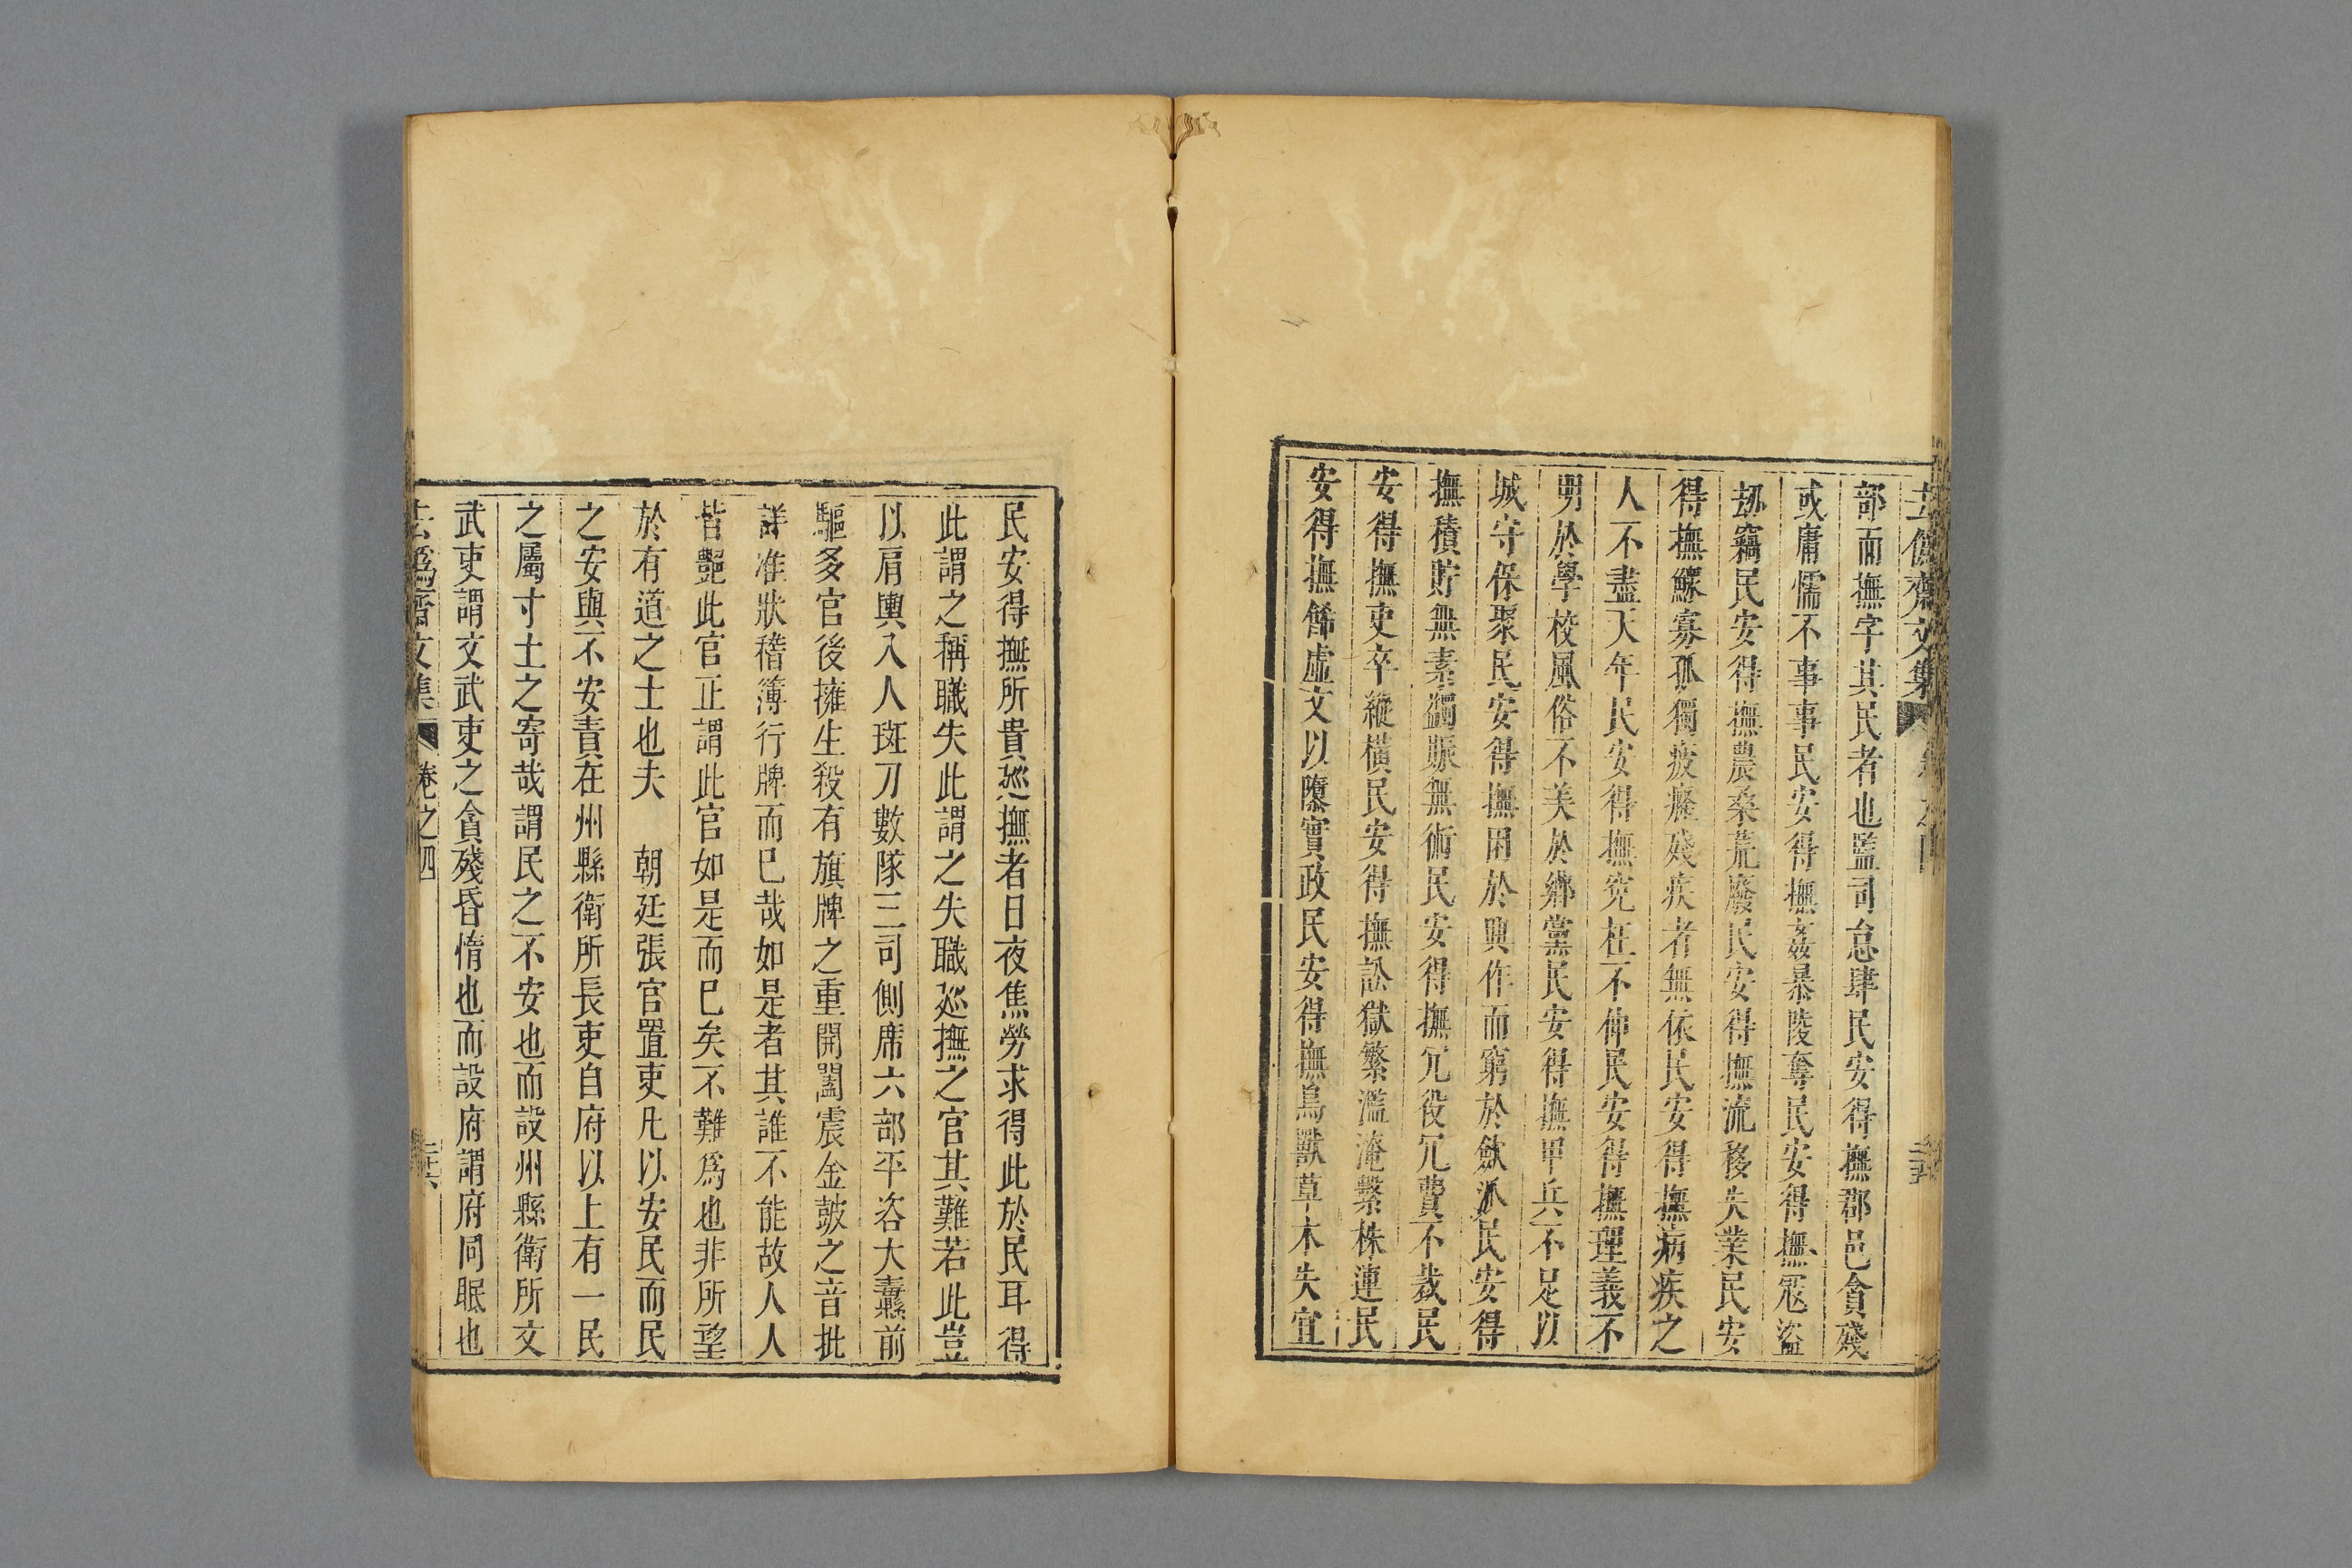 去僞齋文集 卷之四
部而撫字其民者也監司怠肆民安得撫郡邑貪殘
或庸懦不事事民安得撫姦暴陵奪民安得撫寇盜
刼竊民安得撫農桑荒廢民安得撫流移失業民安
得撫鰥寡孤獨疲癃殘疾者無依民安得撫病疾之
人不盡天年民安得撫寃枉不伸民安得撫理義不
明於學校風俗不美於鄉黨民安得撫甲兵不足以
城守保聚民安得撫困於興作而窮於歛派民安得
撫積貯無素蠲賑無術民安得撫冗役冗費不裁民
安得撫吏卒縱橫民安得撫訟獄繁濫淹繫株連民
安得撫餙虛文以隳實政民安得撫鳥獸草木失宜
民安得撫所貴廵撫者日夜焦勞求得此於民耳得
此謂之稱職失此謂之失職廵撫之官其難若此豈
以肩輿入人斑刀數隊三司側席六部平咨大纛前
驅多官後擁生殺有旗牌之重開闔震金鼓之音批
詳准狀稽簿行牌而巳哉如是者其誰不能故人人
皆艷此官正謂此官如是而巳矣不難爲也非所望
於有道之士也夫　朝廷張官置吏凡以安民而民
之安與不安責在州縣衛所長吏自府以上有一民
之屬寸土之寄哉謂民之不安也而設州縣衛所文
武吏謂文武吏之貪殘昏惰也而設府謂府同眠也
去僞齋文集 卷之四 三六